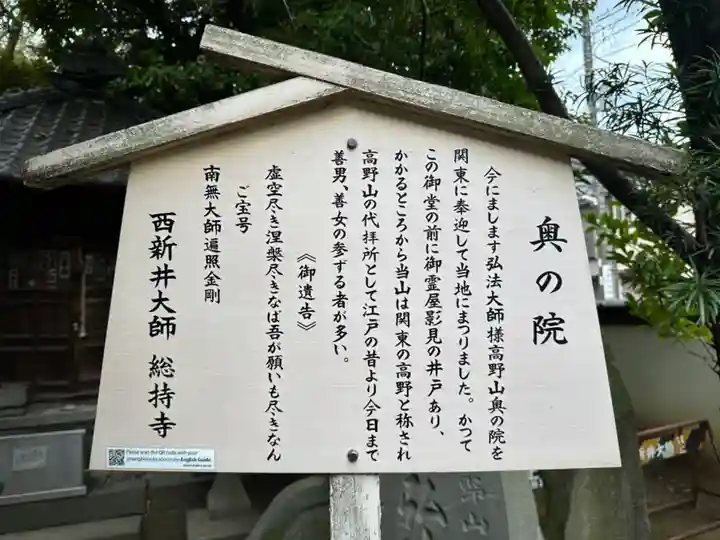 奥の院
今にまします弘法大師様高野山奥の院を
関東に奉迎して当地にまつりました。かつて
この御堂の前に御霊屋影見の井戸あり、
かかるところから当山は関東の高野と称され
高野山の代拝所として江戸の昔より今日まで
善男、善女の参ずる者が多い。
《御遺告》
虚空尽き涅槃尽きなば吾が願いも尽きなん
ご宝号
南無大師遍照金剛
西新井大師 総持寺
Please scan the QR code with your
smartphone to access the English Guide.
柴山